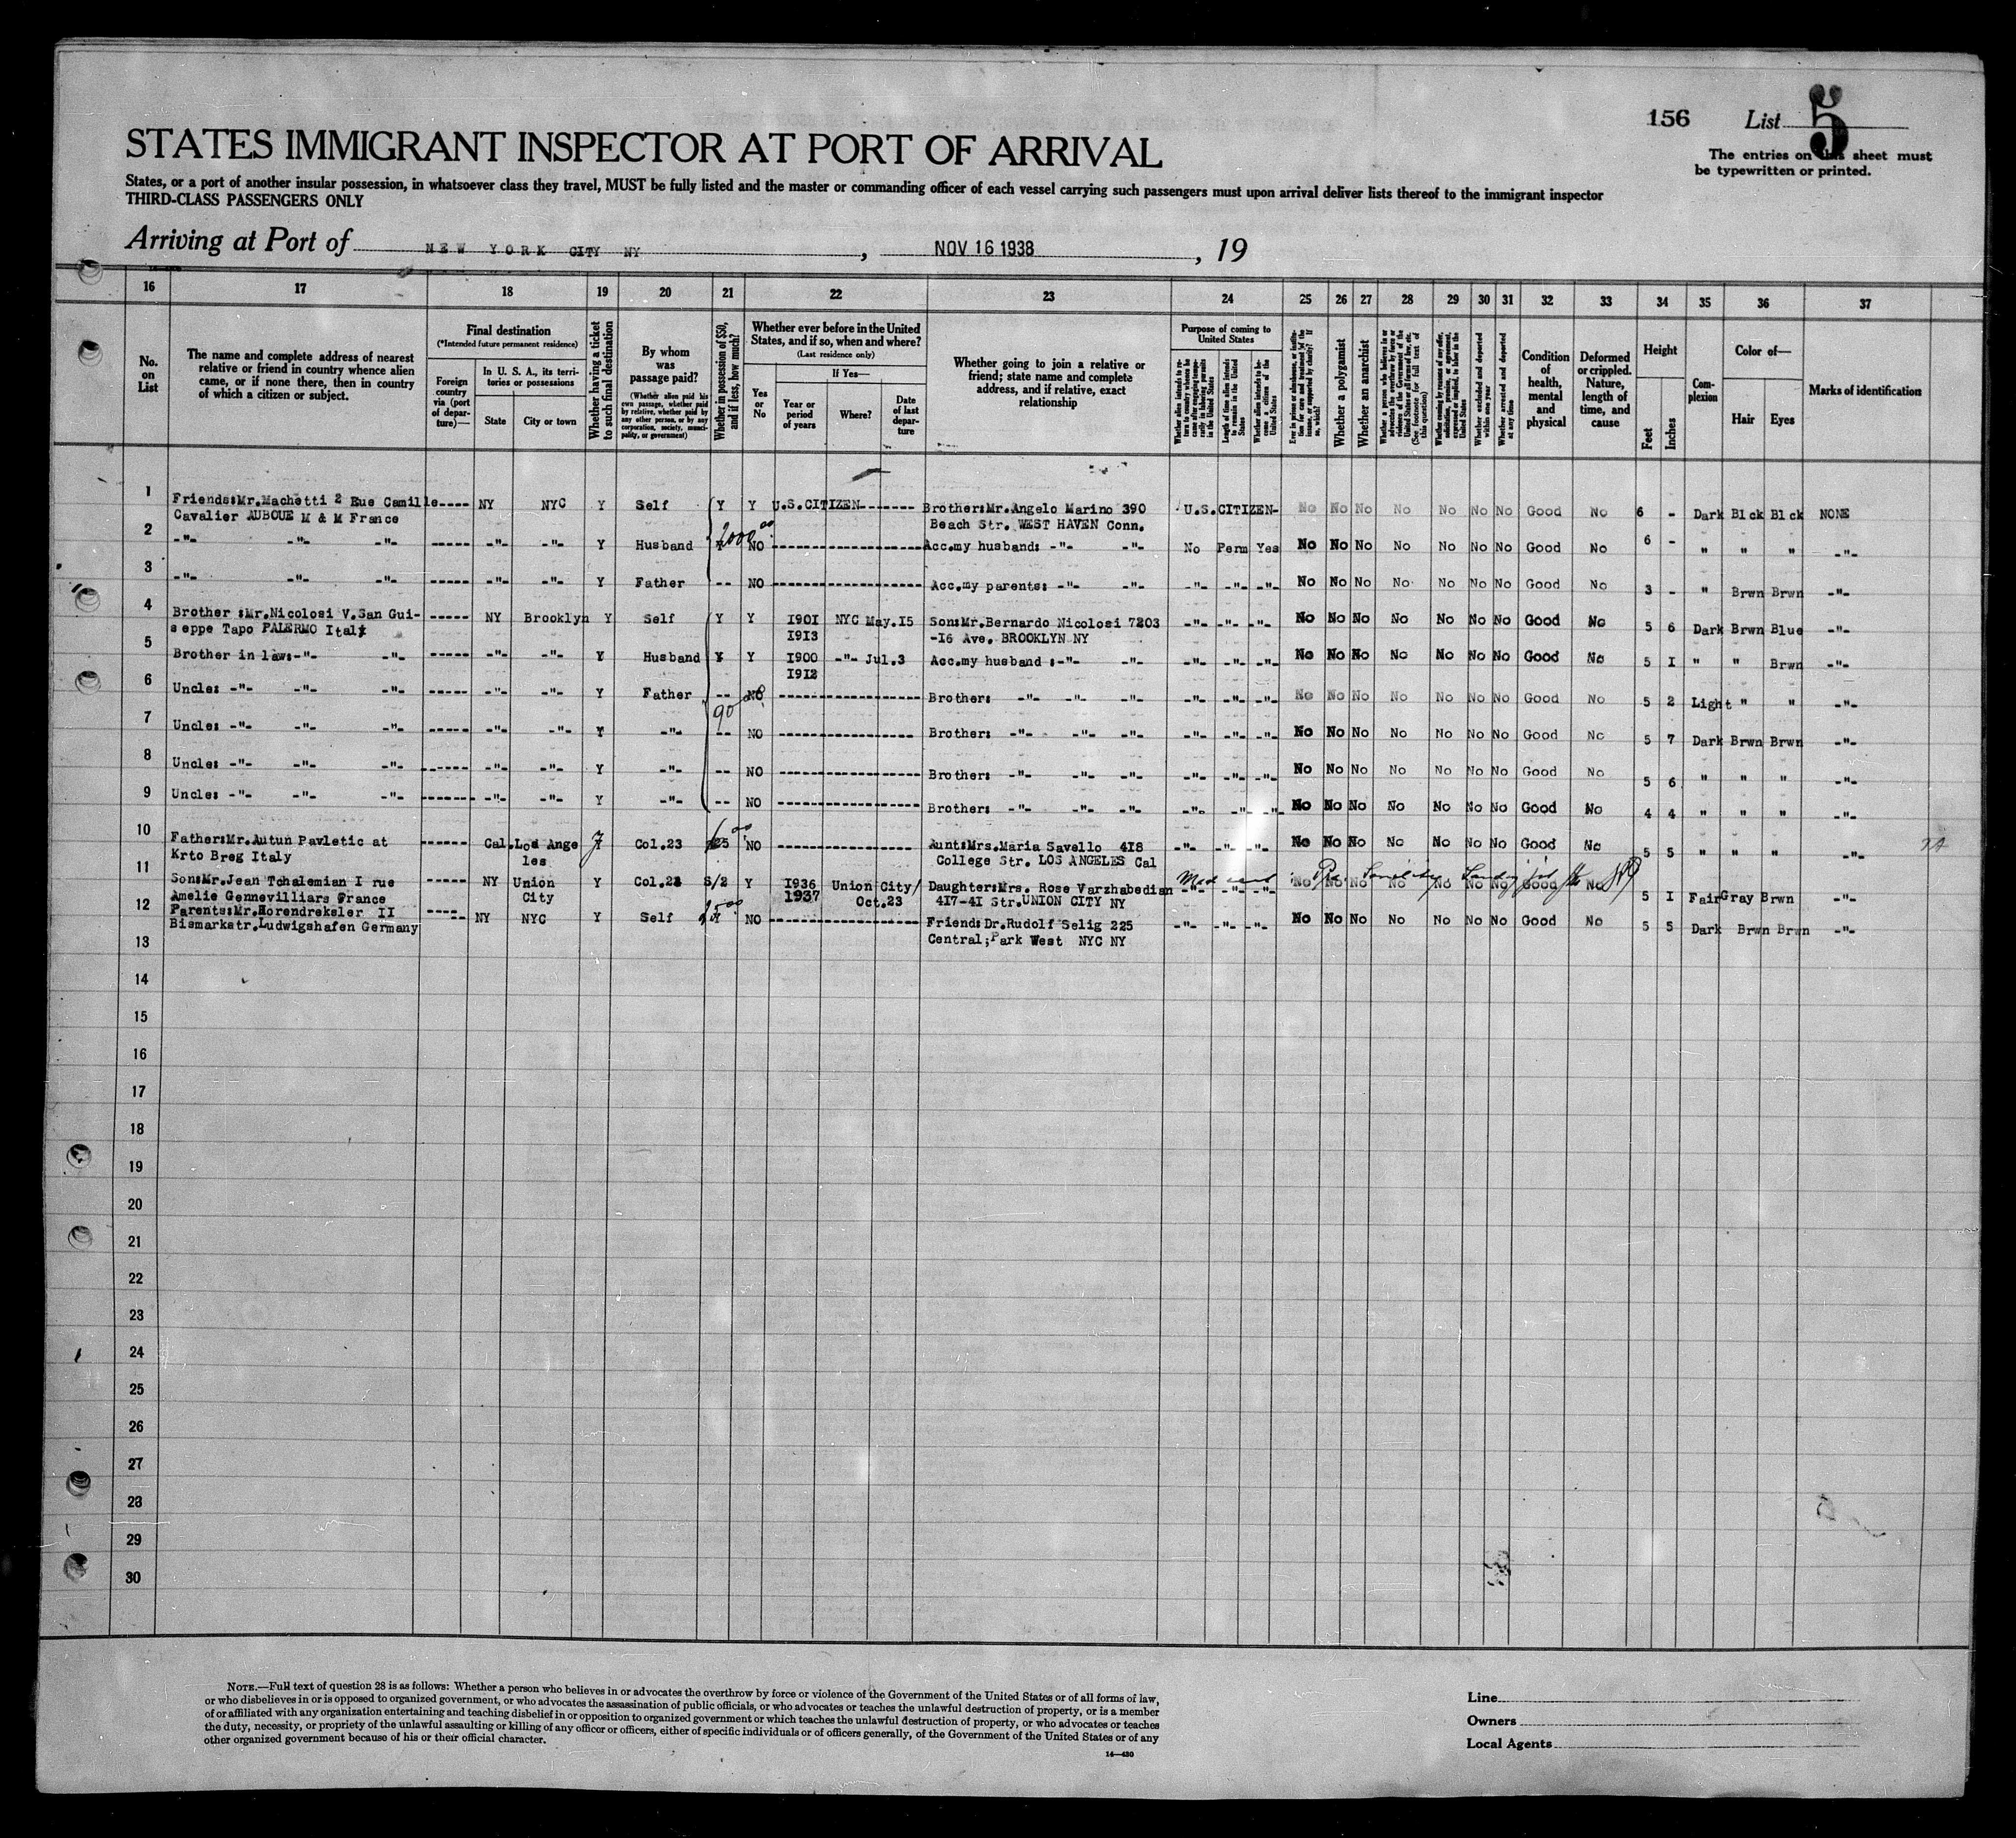 156 List 5
The entries on this sheet must
be typewritten or printed.
STATES IMMIGRANT INSPECTOR AT PORT OF ARRIVAL
States, or a port of another insular possession, in whatsoever class they travel, MUST be fully listed and the master or commanding officer of each vessel carrying such passengers must upon arrival deliver lists thereof to the immigrant inspector
THIRD-CLASS PASSENGERS ONLY
Arriving at Port of NEW YORK CITY NY, NOV 16 1938, 19
16 17 18 19 20 21 22 23 24 25 26 27 28 29 30 31 32 33 34 35 36 37
No. on List
The name and complete address of nearest relative or friend in country whence alien came, or if none there, then in country of which a citizen or subject.
Final destination
(*Intended future permanent residence)
Foreign country via (port of departure)—
In U. S. A., its territories or possessions
State City or town
Whether having a ticket to such final destination
By whom was passage paid?
(Whether alien paid his own passage, whether paid by relative, whether paid by any other person, or by any corporation, society, municipality, or government)
Whether in possession of $50, and if less, how much?
Whether ever before in the United States, and if so, when and where?
(Last residence only)
Yes or No
If Yes—
Year or period of years Where? Date of last departure
Whether going to join a relative or friend; state name and complete address, and if relative, exact relationship
Purpose of coming to United States
Length of time alien intends to remain in the United States
Whether alien intends to become a citizen of the United States
Whether a polygamist
Whether an anarchist
Whether excluded and deported within one year
Whether arrested and deported at any time
Condition of health, mental and physical
Deformed or crippled. Nature, length of time, and cause
Height
Feet Inches
Complexion
Color of—
Hair Eyes
Marks of identification
1 Friends:Mr.Machetti 2 Rue Camille ---- NY NYC Y Self Y Y U.S.CITIZEN------- Brother:Mr.Angelo Marino 390 U.S.CITIZEN- No No No No No No No Good No 6 - Dark Blck Blck NONE
Cavalier AUBOUE M & M France Beach Str. WEST HAVEN Conn.
2 -"- -"- -"- ----- -"- -"- Y Husband 2000.00 NO ---------- Acc.my husband: -"- -"- No Perm Yes No No No No No No No Good No 6 - " " " -"-
3 -"- -"- -"- ----- -"- -"- Y Father -- NO ---------- Acc.my parents: -"- -"- -"- -"- -"- No No No No No No No Good No 3 - " Brwn Brwn -"-
4 Brother :Mr.Nicolosi V.San Gui- ----- NY Brooklyn Y Self Y Y 1901 NYC May.15 Son:Mr.Bernardo Nicolosi 7203 -"- -"- -"- No No No No No No No Good No 5 6 Dark Brwn Blue -"-
seppe Tapo PALERMO Italy 1913 -16 Ave. BROOKLYN NY
5 Brother in law:-"- -"- ----- -"- -"- Y Husband Y Y 1900 -"- Jul.3 Acc.my husband :-"- -"- -"- -"- -"- No No No No No No No Good No 5 1 " " Brwn -"-
1912
6 Uncle: -"- -"- -"- ----- -"- -"- Y Father -- NO ---------- Brother: -"- -"- -"- -"- -"- -"- No No No No No No No Good No 5 2 Light " " -"-
90
7 Uncle: -"- -"- -"- ----- -"- -"- Y -"- -- NO ---------- Brother: -"- -"- -"- -"- -"- -"- No No No No No No No Good No 5 7 Dark Brwn Brwn -"-
8 Uncle: -"- -"- -"- ------ -"- -"- Y -"- -- NO ---------- Brother: -"- -"- -"- -"- -"- -"- No No No No No No No Good No 5 6 " " " -"-
9 Uncle: -"- -"- -"- ------- -"- -"- Y -"- -- NO ---------- Brother: -"- -"- -"- -"- -"- -"- No No No No No No No Good No 4 4 " " " -"-
10 Father:Mr.Autun Pavletic at ------ Cal.Los Ange Y Col.23 25 NO Aunt:Mrs.Maria Savello 418 -"- -"- -"- No No No No No No No Good No 5 5 " " " -"-
Krto Breg Italy les College Str. LOS ANGELES Cal
11 Son:Mr.Jean Tchalemian I rue ----- NY Union Y Col.23 S/2 Y 1936 Union City/ Daughter:Mrs. Rose Varzhabedian Med cert -"- -"- -"- No No No No No No No Good No 5 1 Fair Gray Brwn -"-
Amelie Gennevilliars France City 1937 Oct.23 417-41 Str.UNION CITY NY
12 Parents:Mr.Horendrekeler II ------ NY NYC Y Self NO ---------- Friend:Dr.Rudolf Selig 225 -"- -"- -"- No No No No No No No Good No 5 5 Dark Brwn Brwn -"-
Bismarkstr.Ludwigshafen Germany Central;Park West NYC NY
13
14
15
16
17
18
19
20
21
22
23
24
25
26
27
28
29
30
NOTE.—Full text of question 28 is as follows: Whether a person who believes in or advocates the overthrow by force or violence of the Government of the United States or of all forms of law,
or who disbelieves in or is opposed to organized government, or who advocates the assassination of public officials, or who advocates or teaches the unlawful destruction of property, or is a member
of or affiliated with any organization entertaining and teaching disbelief in or opposition to organized government or which teaches the unlawful destruction of property, or who advocates or teaches
the duty, necessity, or propriety of the unlawful assaulting or killing of any officer or officers, either of specific individuals or of officers generally, of the Government of the United States or of any
other organized government because of his or their official character.
14—430
Line
Owners
Local Agents